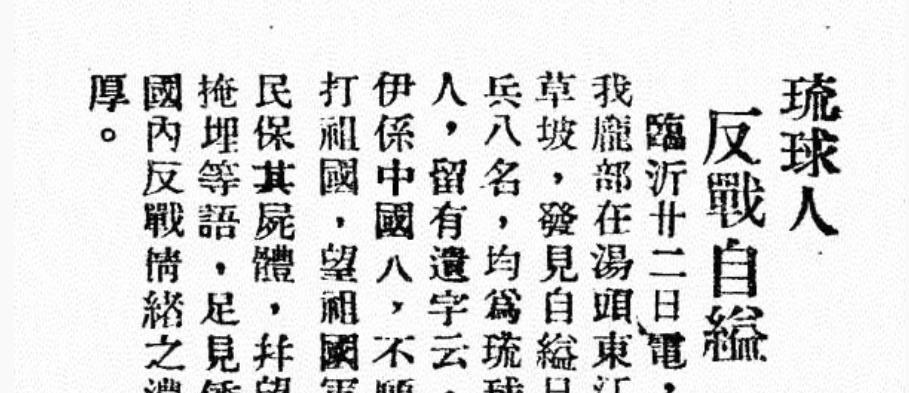 琉球人
反戰自縊
臨沂廿二日電，
我龐部在湯頭東江
草坡，發見自縊日
兵八名，均爲琉球
人，留有遺字云，
伊係中國人，不願
打祖國，望祖國軍
民保其屍體，幷望
掩埋等語，足見倭
國內反戰情緒之濃
厚。